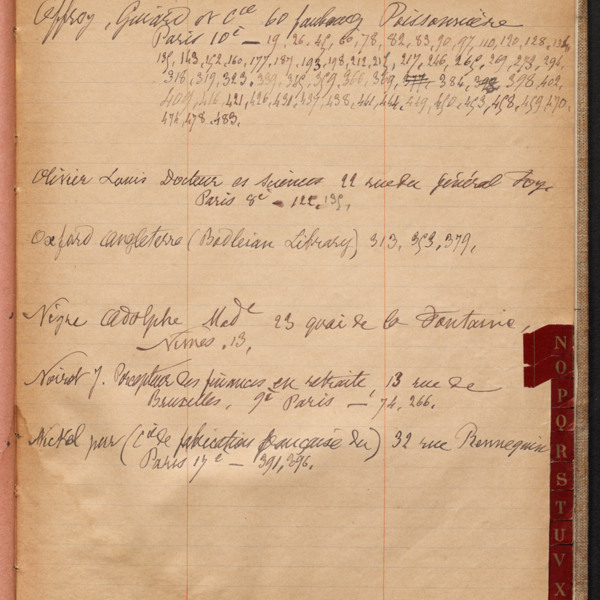 Geffroy, Guiard et Cie 60 faubourg Poissonnière
Paris 10e — 19, 26, 45, 66, 78, 82, 83, 90, 97, 110, 120, 128, 136,
135, 143, 152, 160, 177, 187, 193, 198, 212, 215, 217, 246, 265, 269, 273, 296,
318, 319, 323, 339, 345, 359, 366, 369, 384, 398, 402,
409, 416, 421, 426, 431, 437, 438, 441, 444, 449, 450, 453, 458, 459, 470,
474, 478, 483.
Olivier Louis Docteur es sciences 22 rue du général Foy,
Paris 8e — 122, 135,
Oxford Angleterre (Bodleian Library) 313, 353, 379,
Nègre Adolphe Made 23 quai de la Fontaine,
Nimes, 13,
Noirot J. Percepteur des finances en retraite, 13 rue de
Bruxelles, 9e Paris — 74, 266.
Nickel pur (Cie de fabrication française du) 32 rue Rennequin
Paris 17e — 391, 396.
N
O
P
Q
R
S
T
U
V
X